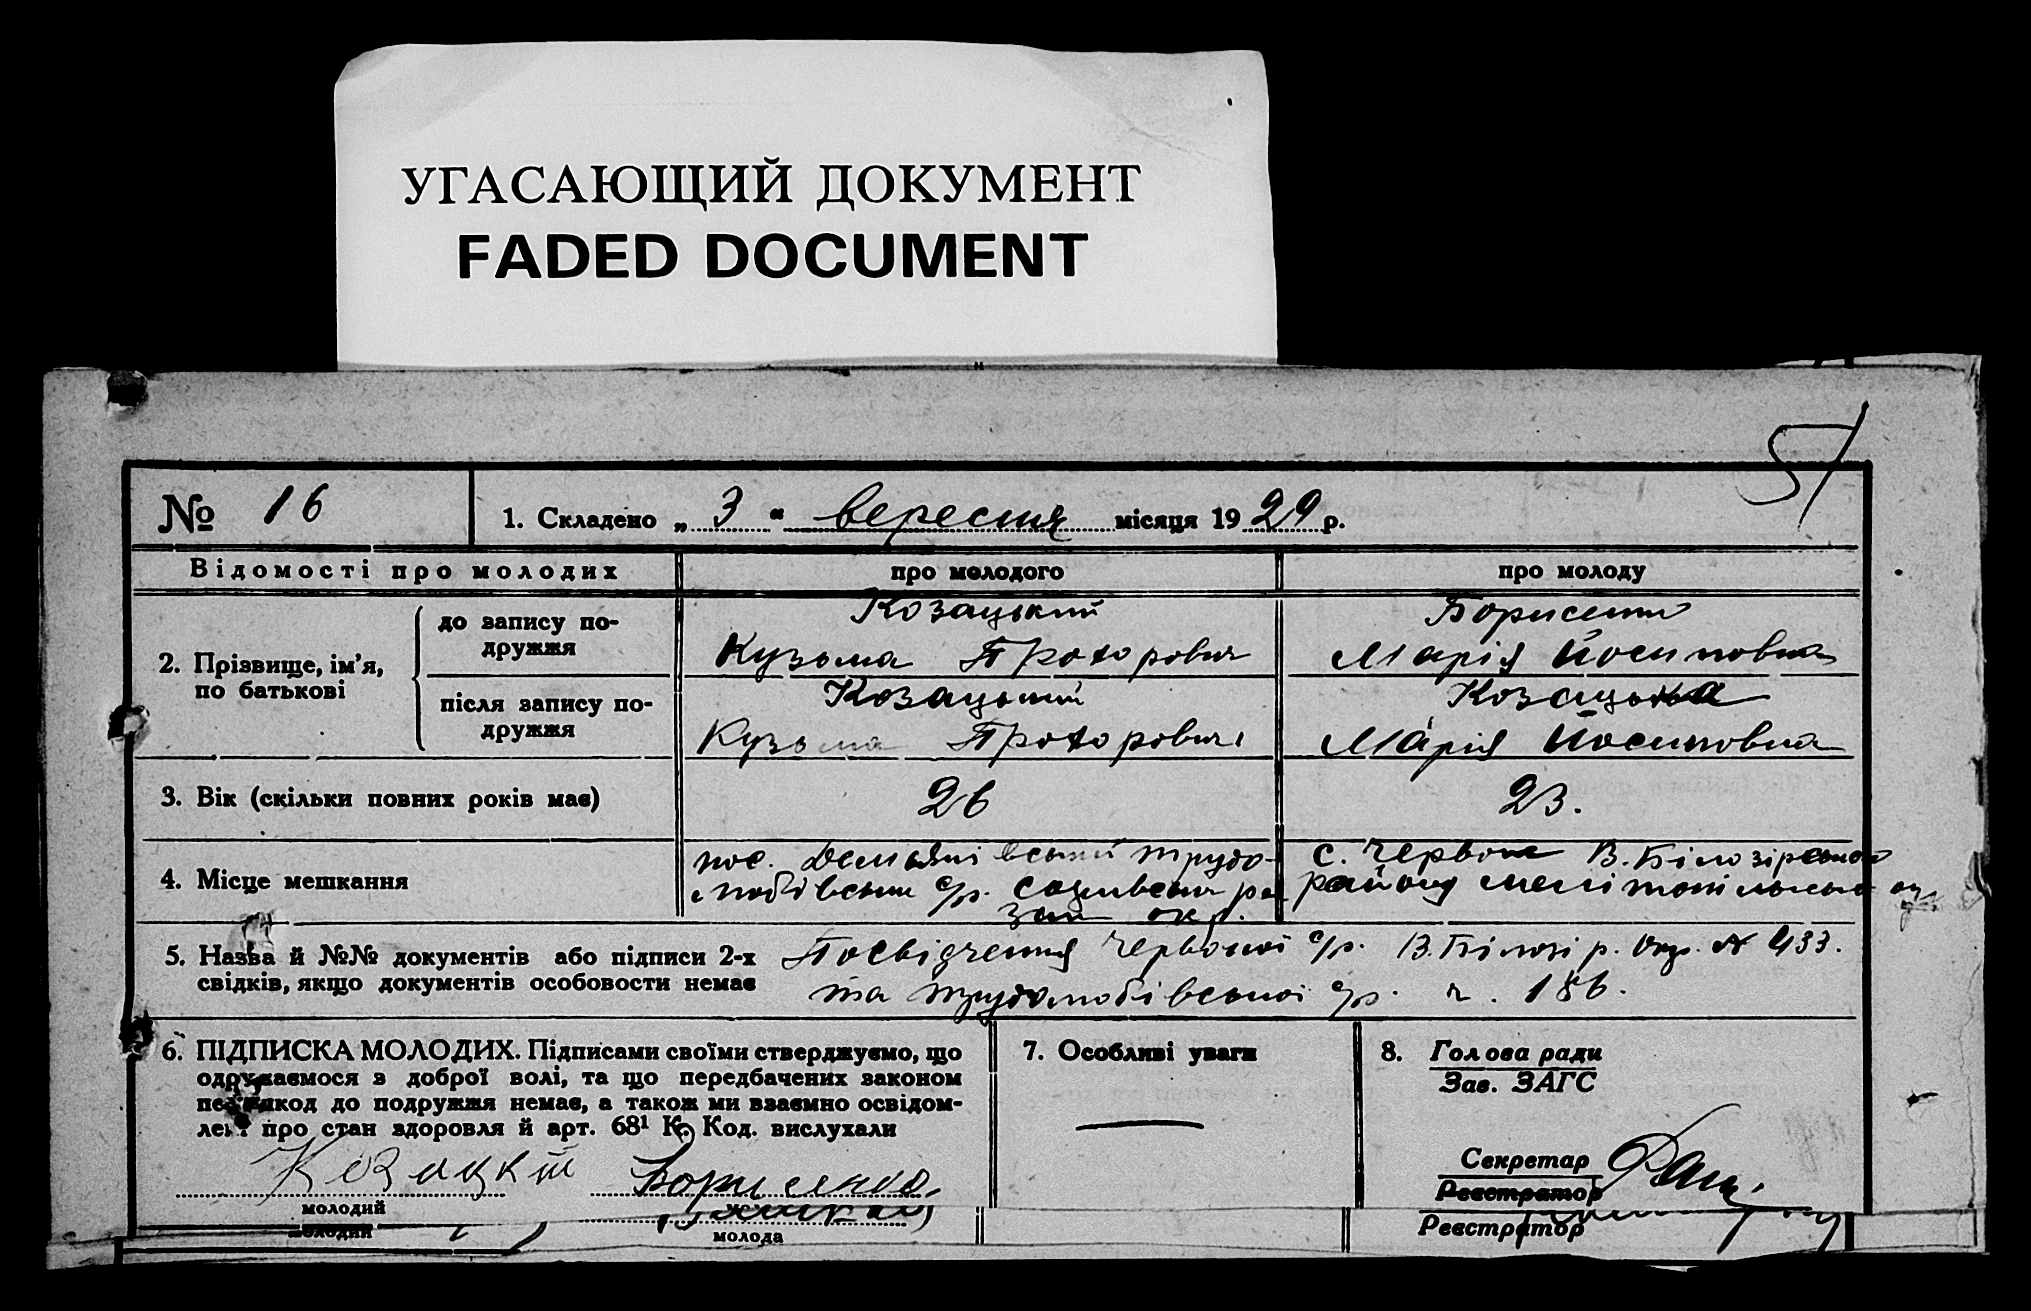 УГАСАЮЩИЙ ДОКУМЕНТ
FADED DOCUMENT
51
№ 16
1. Складено „ 3 “ вересня місяця 1929 р.
Відомості про молодих
про молодого
про молоду
2. Прізвище, ім'я, по батькові
до запису подружжя
Козацький
Кузьма Прохорович
Борисенко
Марія Йосиповна
після запису подружжя
Козацький
Кузьма Прохорович
Козацька
Марія Йосиповна
3. Вік (скільки повних років має)
26
23.
4. Місце мешкання
пос. трудо-
любівськи с/р.
зап окр.
с. Червоне В. Білозірського
району мелітопільської
5. Назва й №№ документів або підписи 2-х
свідків, якщо документів особовости немає
Посвідчення Червоної с/р. В. Білозір. № 433.
та трудолюбівської с/р. ч. 186.
6. ПІДПИСКА МОЛОДИХ. Підписами своїми стверджуємо, що
одружаємося з доброї волі, та що передбачених законом
перешкод до подружжя немає, а також ми взаємно освідом-
лені про стан здоровля й арт. 68¹ К. Код. вислухали
Козацкій
Борисенко
молодий
молодий
молода
7. Особливі уваги
8. Голова ради
Зав. ЗАГС
Секретар
Реєстратор
Реєстратор